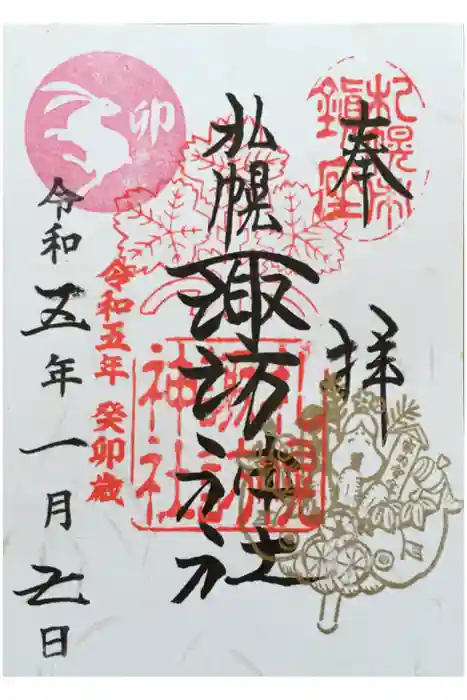 奉拝
札幌市
鎮座
札幌諏訪神社
札幌
諏訪
神社
卯
令和五年
癸卯歳
令和五年一月二日